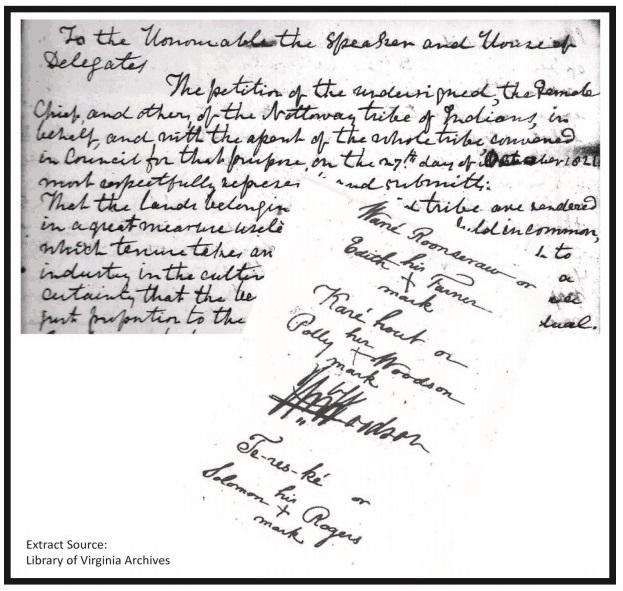 To the Honourable the Speaker and House of
Delegates
The petition of the undersigned, the Female
Chief, and others, of the Nottoway tribe of Indians, in
behalf, and with the assent of the whole tribe convened
in Council for that purpose, on the 27th day of
most respectfully represe and submitt:
That the lands belongin tribe are rendered
in a great measure usele ld in common,
which tenure takes an to
industry in the cultiv a
certainty that the be
just proportion to the dual.
Wané Roonseraw or
Edith his Turner
mark
Karé hout or
Polly her Woodson
mark
Woodson
Te-res-ké or
his
Solomon + Rogers
mark
Extract Source:
Library of Virginia Archives